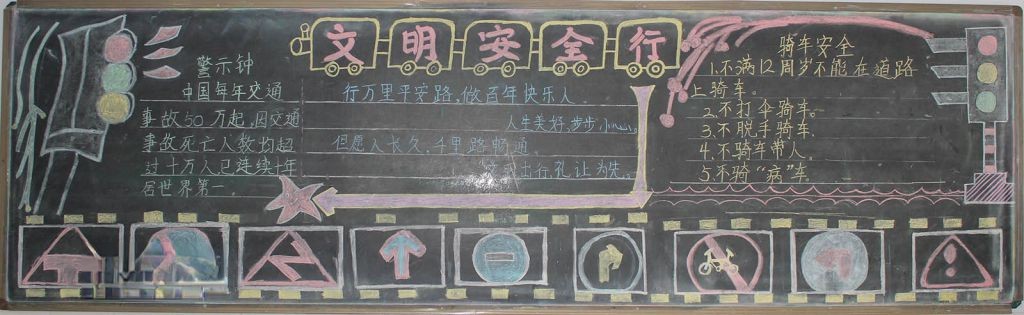 文明安全行
警示钟
中国每年交通
事故50万起,因交通
事故死亡人数均超
过十万人已连续十年
居世界第一。
行万里平安路,做百年快乐人。
人生美好,步步小心。
但愿人长久,千里路畅通。
出行,礼让为先。
骑车安全
1.不满12周岁不能在道路
上骑车。
2.不打伞骑车。
3.不脱手骑车.
4.不骑车带人。
5.不骑“病”车